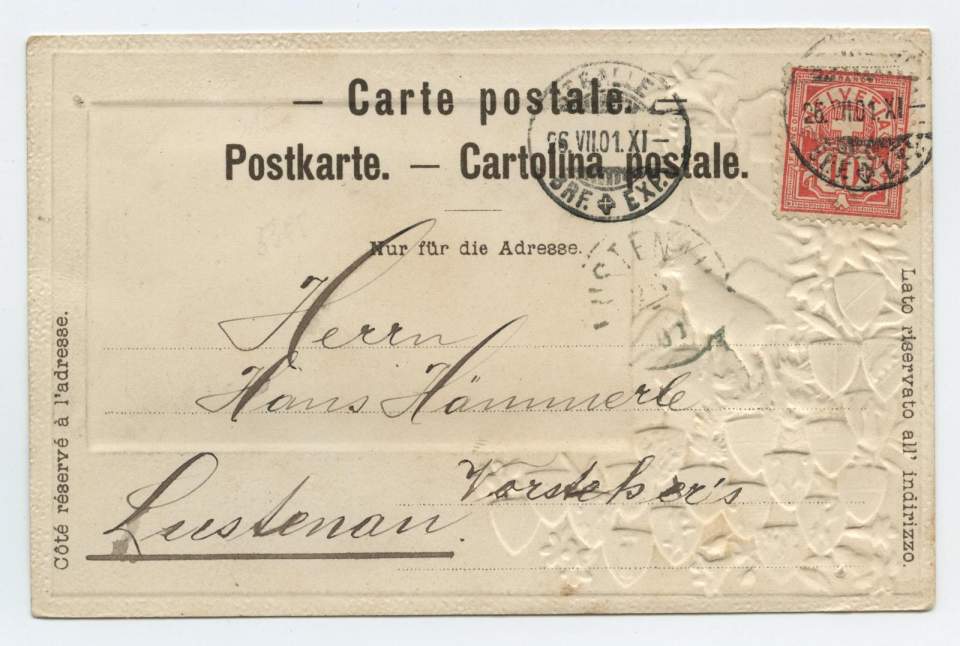 — Carte postale. —
Postkarte. — Cartolina postale.
Nur für die Adresse.
Côté réservé à l'adresse.
Lato riservato all' indirizzo.
HELVETIA
26. VII.01. XI—
BRF. EXP.
26. VII.01. XI—
LUSTENAU
Herrn
Hans Hämmerle
Vorsteher's
Lustenau.